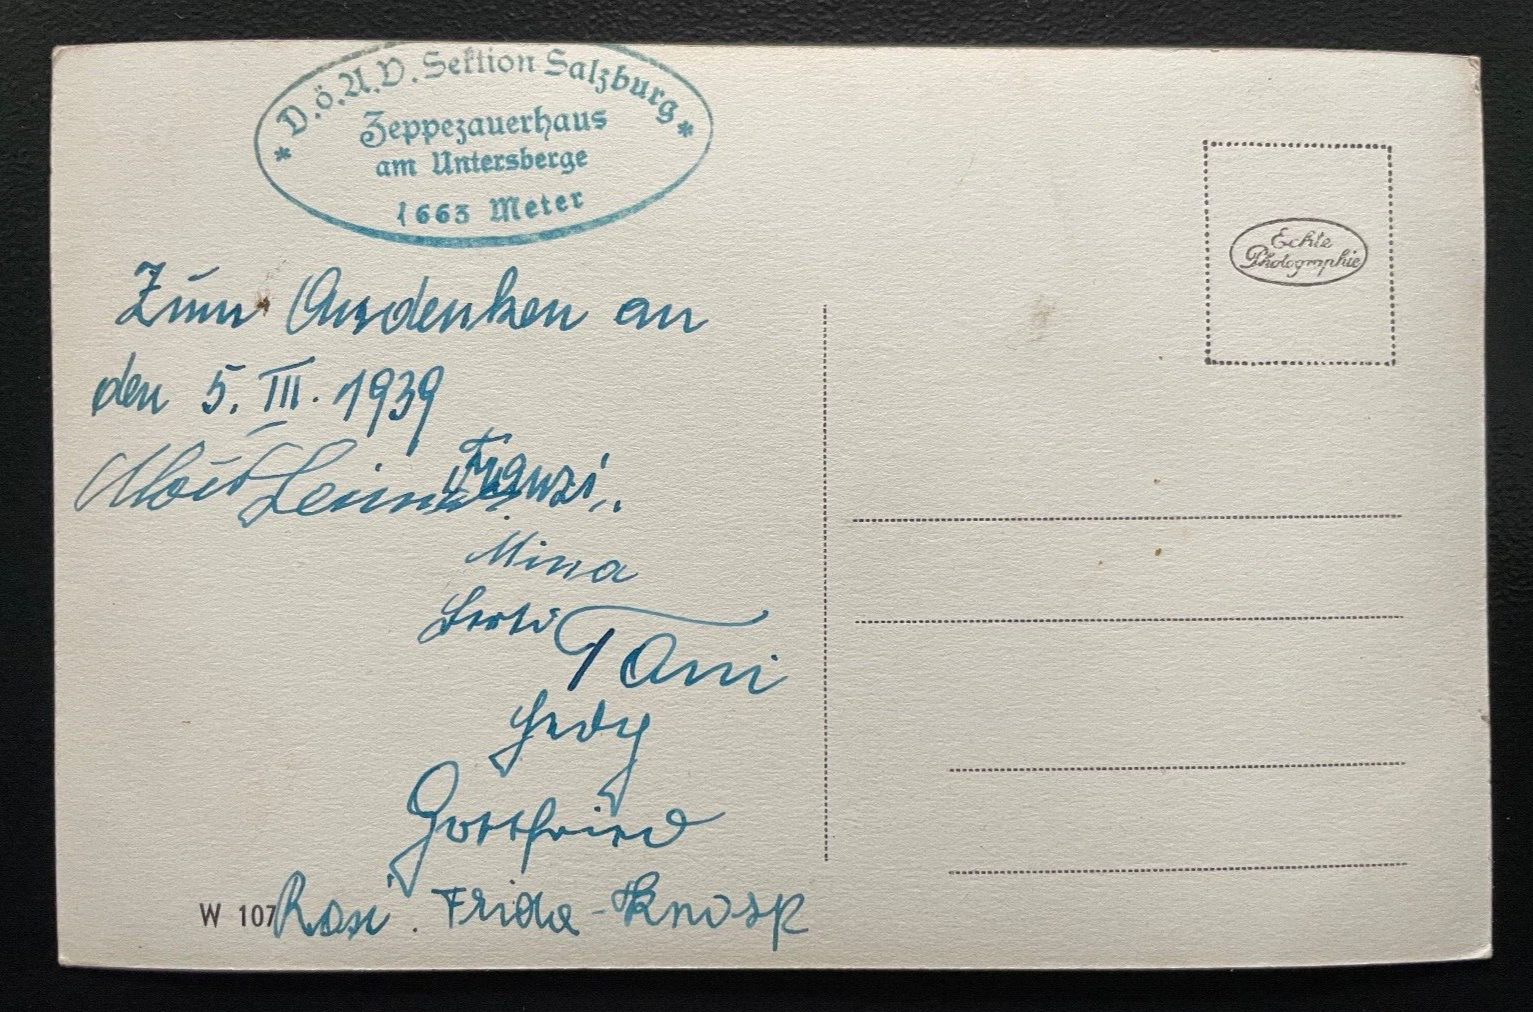 * D.ö.A.V. Sektion Salzburg *
Zeppezauerhaus
am Untersberge
1663 Meter
Echte
Photographie
Zum Andenken an
den 5. III. 1939
Franzi
Mina
Berti
Toni
Hedy
Gottfried
W 107
Rosi. Frida - Knosp